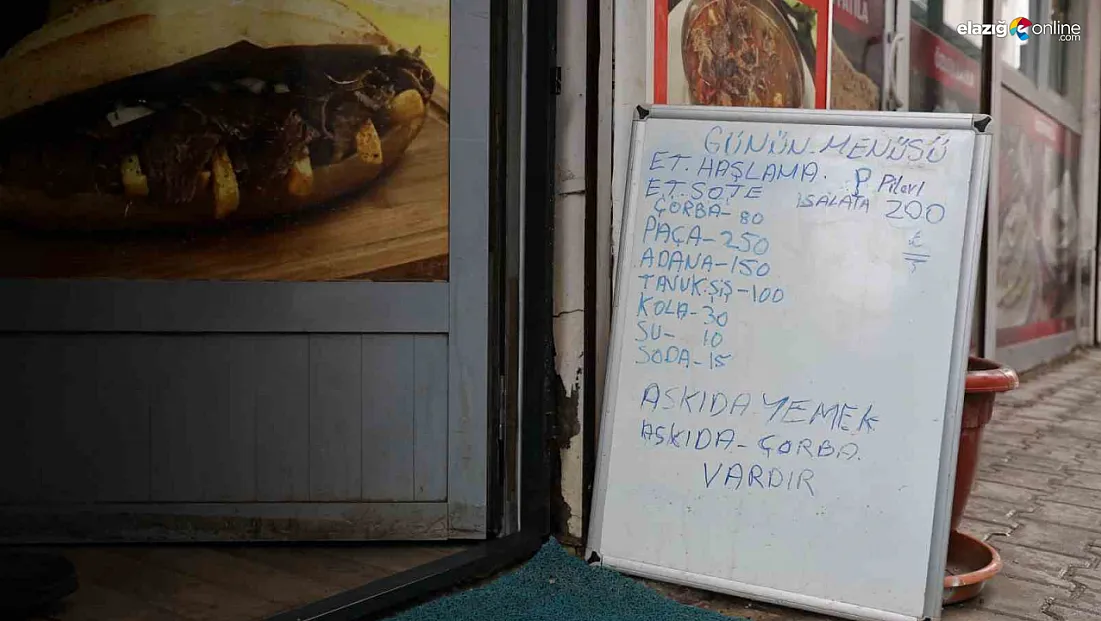 elazığ online
.com
GÜNÜN.MENÜSÜ
ET.HAŞLAMA. P Pilavı
ET.SOTE SALATA 200
ÇORBA-80
PAÇA-250
ADANA-150
TAVUK.ŞİŞ-100
KOLA-30
SU- 10
SODA-15
ASKIDA YEMEK
ASKIDA-ÇORBA.
VARDIR